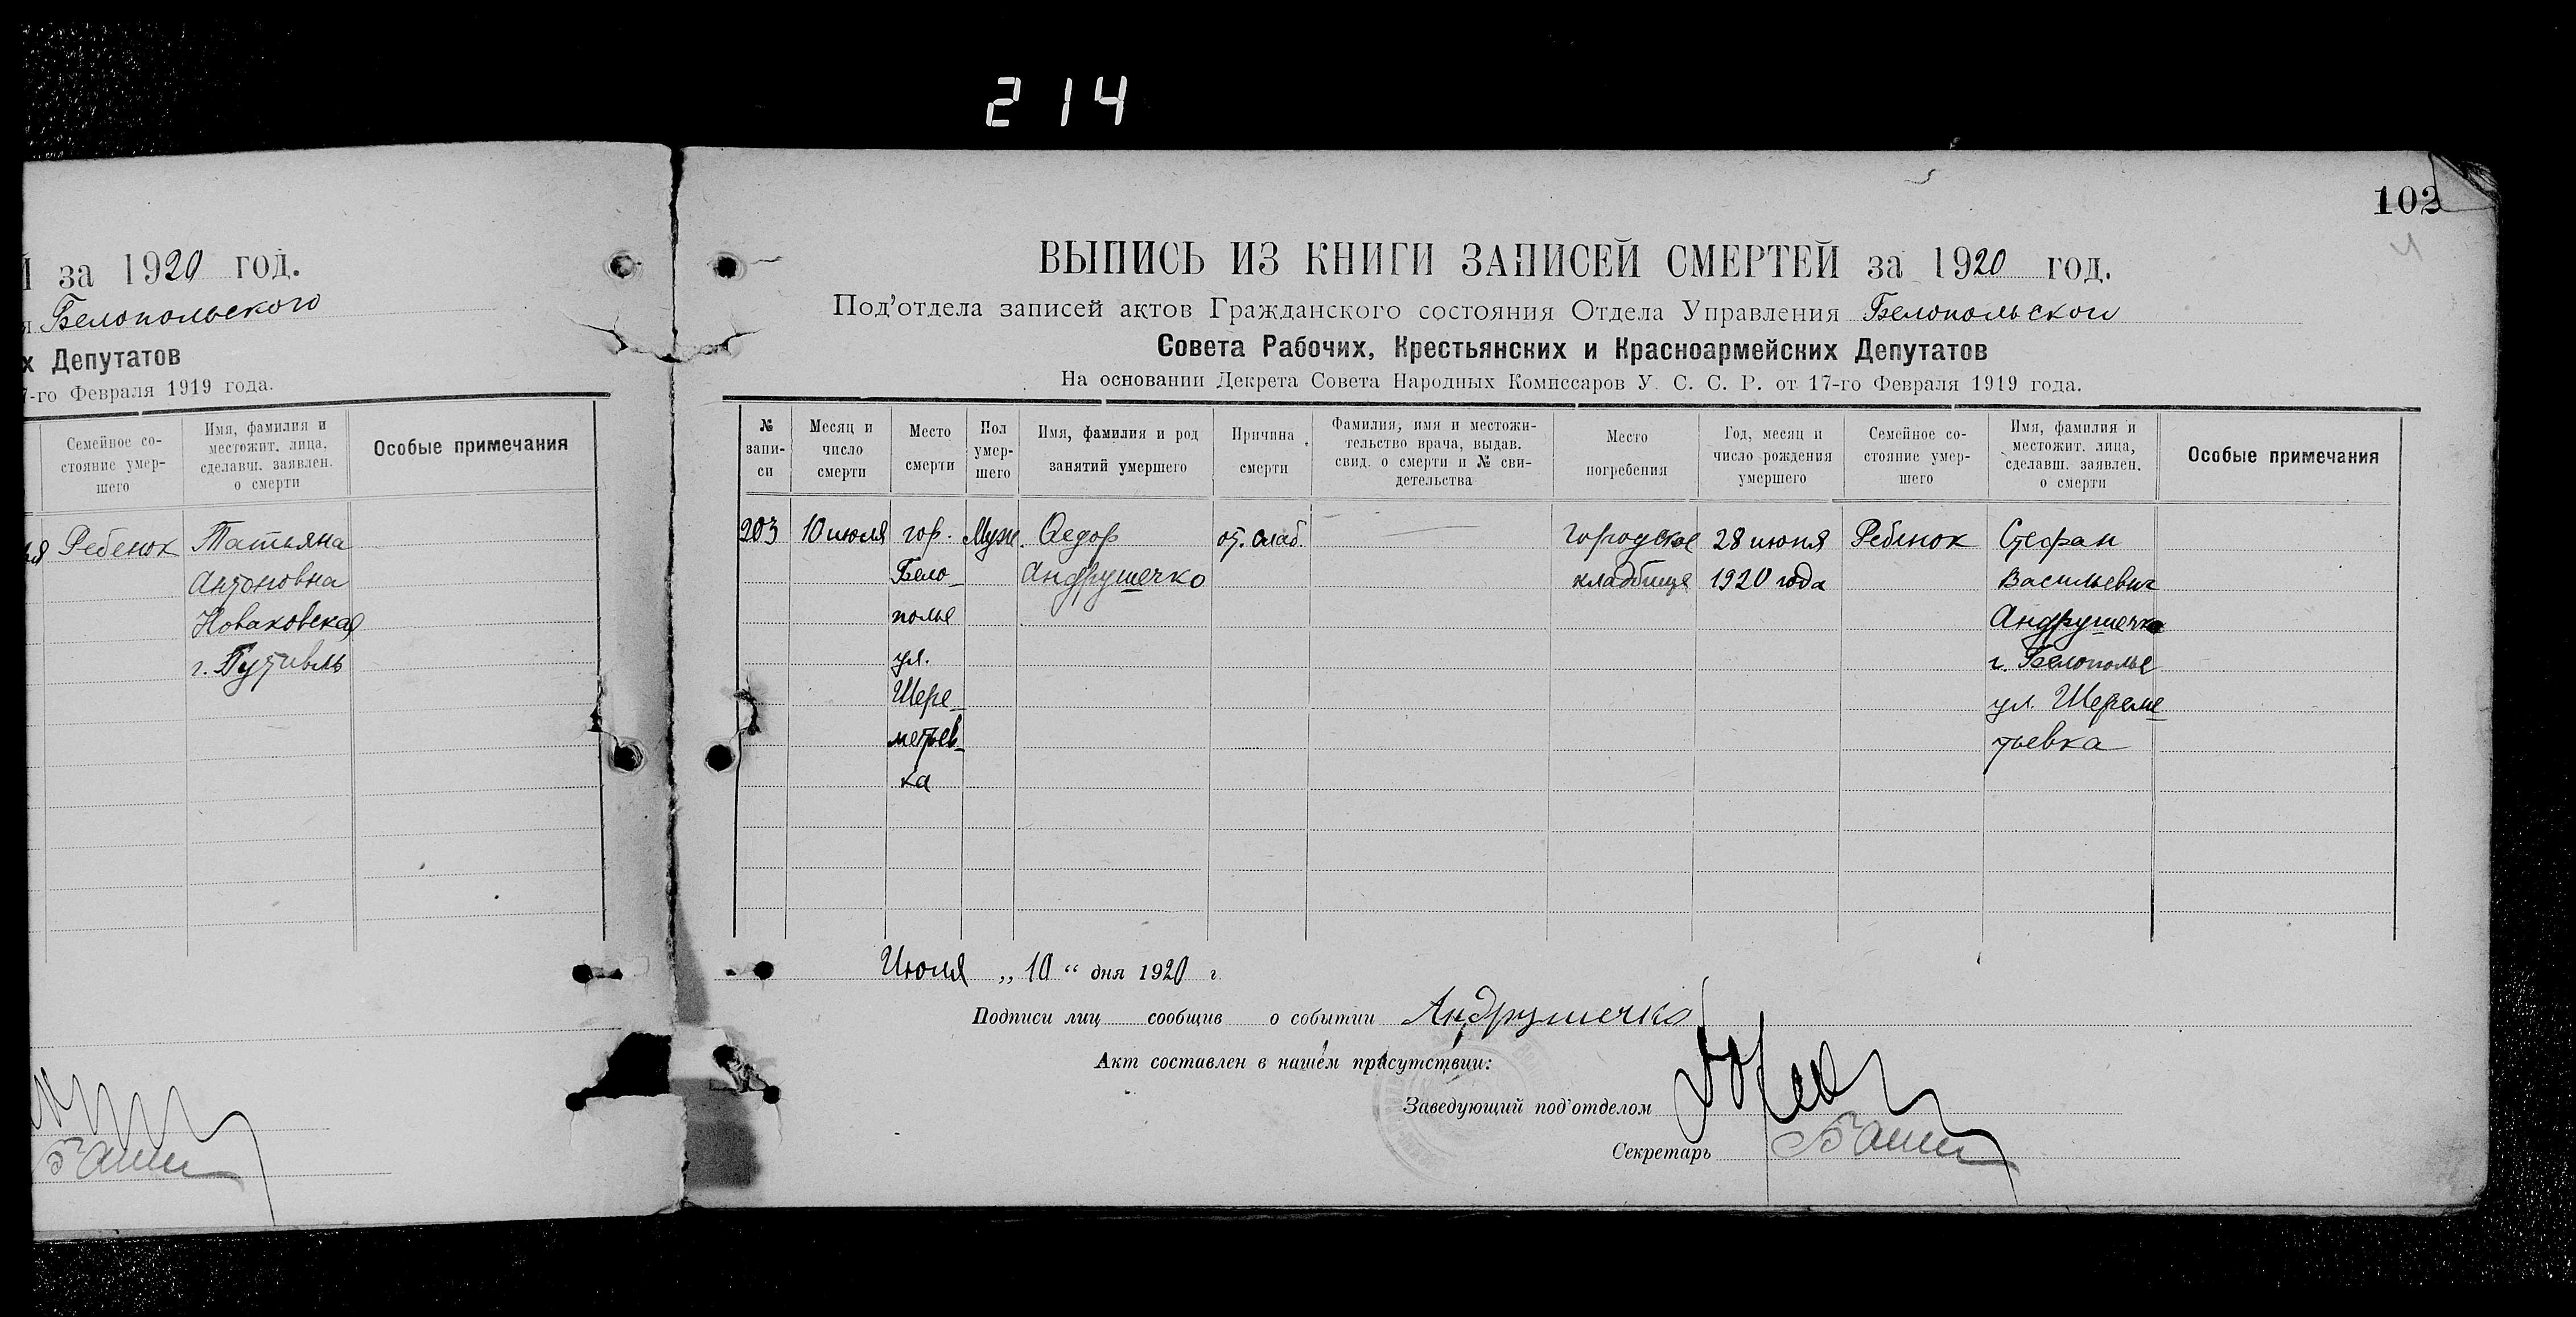 214
й за 1920 год.
я Белопольского
х Депутатов
7-го Февраля 1919 года.
Семейное со-
стояние умер-
шего
Имя, фамилия и
местожит. лица,
сделавш. заявлен.
о смерти
Особые примечания
Ребенок
Татьяна
Антоновна
Новаковская
г. Путивль
102
ВЫПИСЬ ИЗ КНИГИ ЗАПИСЕЙ СМЕРТЕЙ за 1920 год.
Под'отдела записей актов Гражданского состояния Отдела Управления Белопольского
Совета Рабочих, Крестьянских и Красноармейских Депутатов
На основании Декрета Совета Народных Комиссаров У. С. С. Р. от 17-го Февраля 1919 года.
№
запи-
си
Месяц и
число
смерти
Место
смерти
Пол
умер-
шего
Имя, фамилия и род
занятий умершего
Причина
смерти
Фамилия, имя и местожи-
тельство врача, выдав.
свид. о смерти и № сви-
детельства
Место
погребения
Год, месяц и
число рождения
умершего
Семейное со-
стояние умер-
шего
Имя, фамилия и
местожит. лица,
сделавш. заявлен.
о смерти
Особые примечания
203
10 июля
гор.
Бело-
полье
ул.
Шере-
метьев-
ка
Муж.
Федор
Андрушечко
от. слаб.
Городское
кладбище
28 июня
1920 года
Ребенок
Стефан
Васильевич
Андрушечко
г. Белополье
ул. Шереме-
тьевка
Июля „10“ дня 1920 г
Подписи лиц сообщив о событии Андрушечко
Акт составлен в нашем присутствии:
Заведующий под'отделом
Секретарь